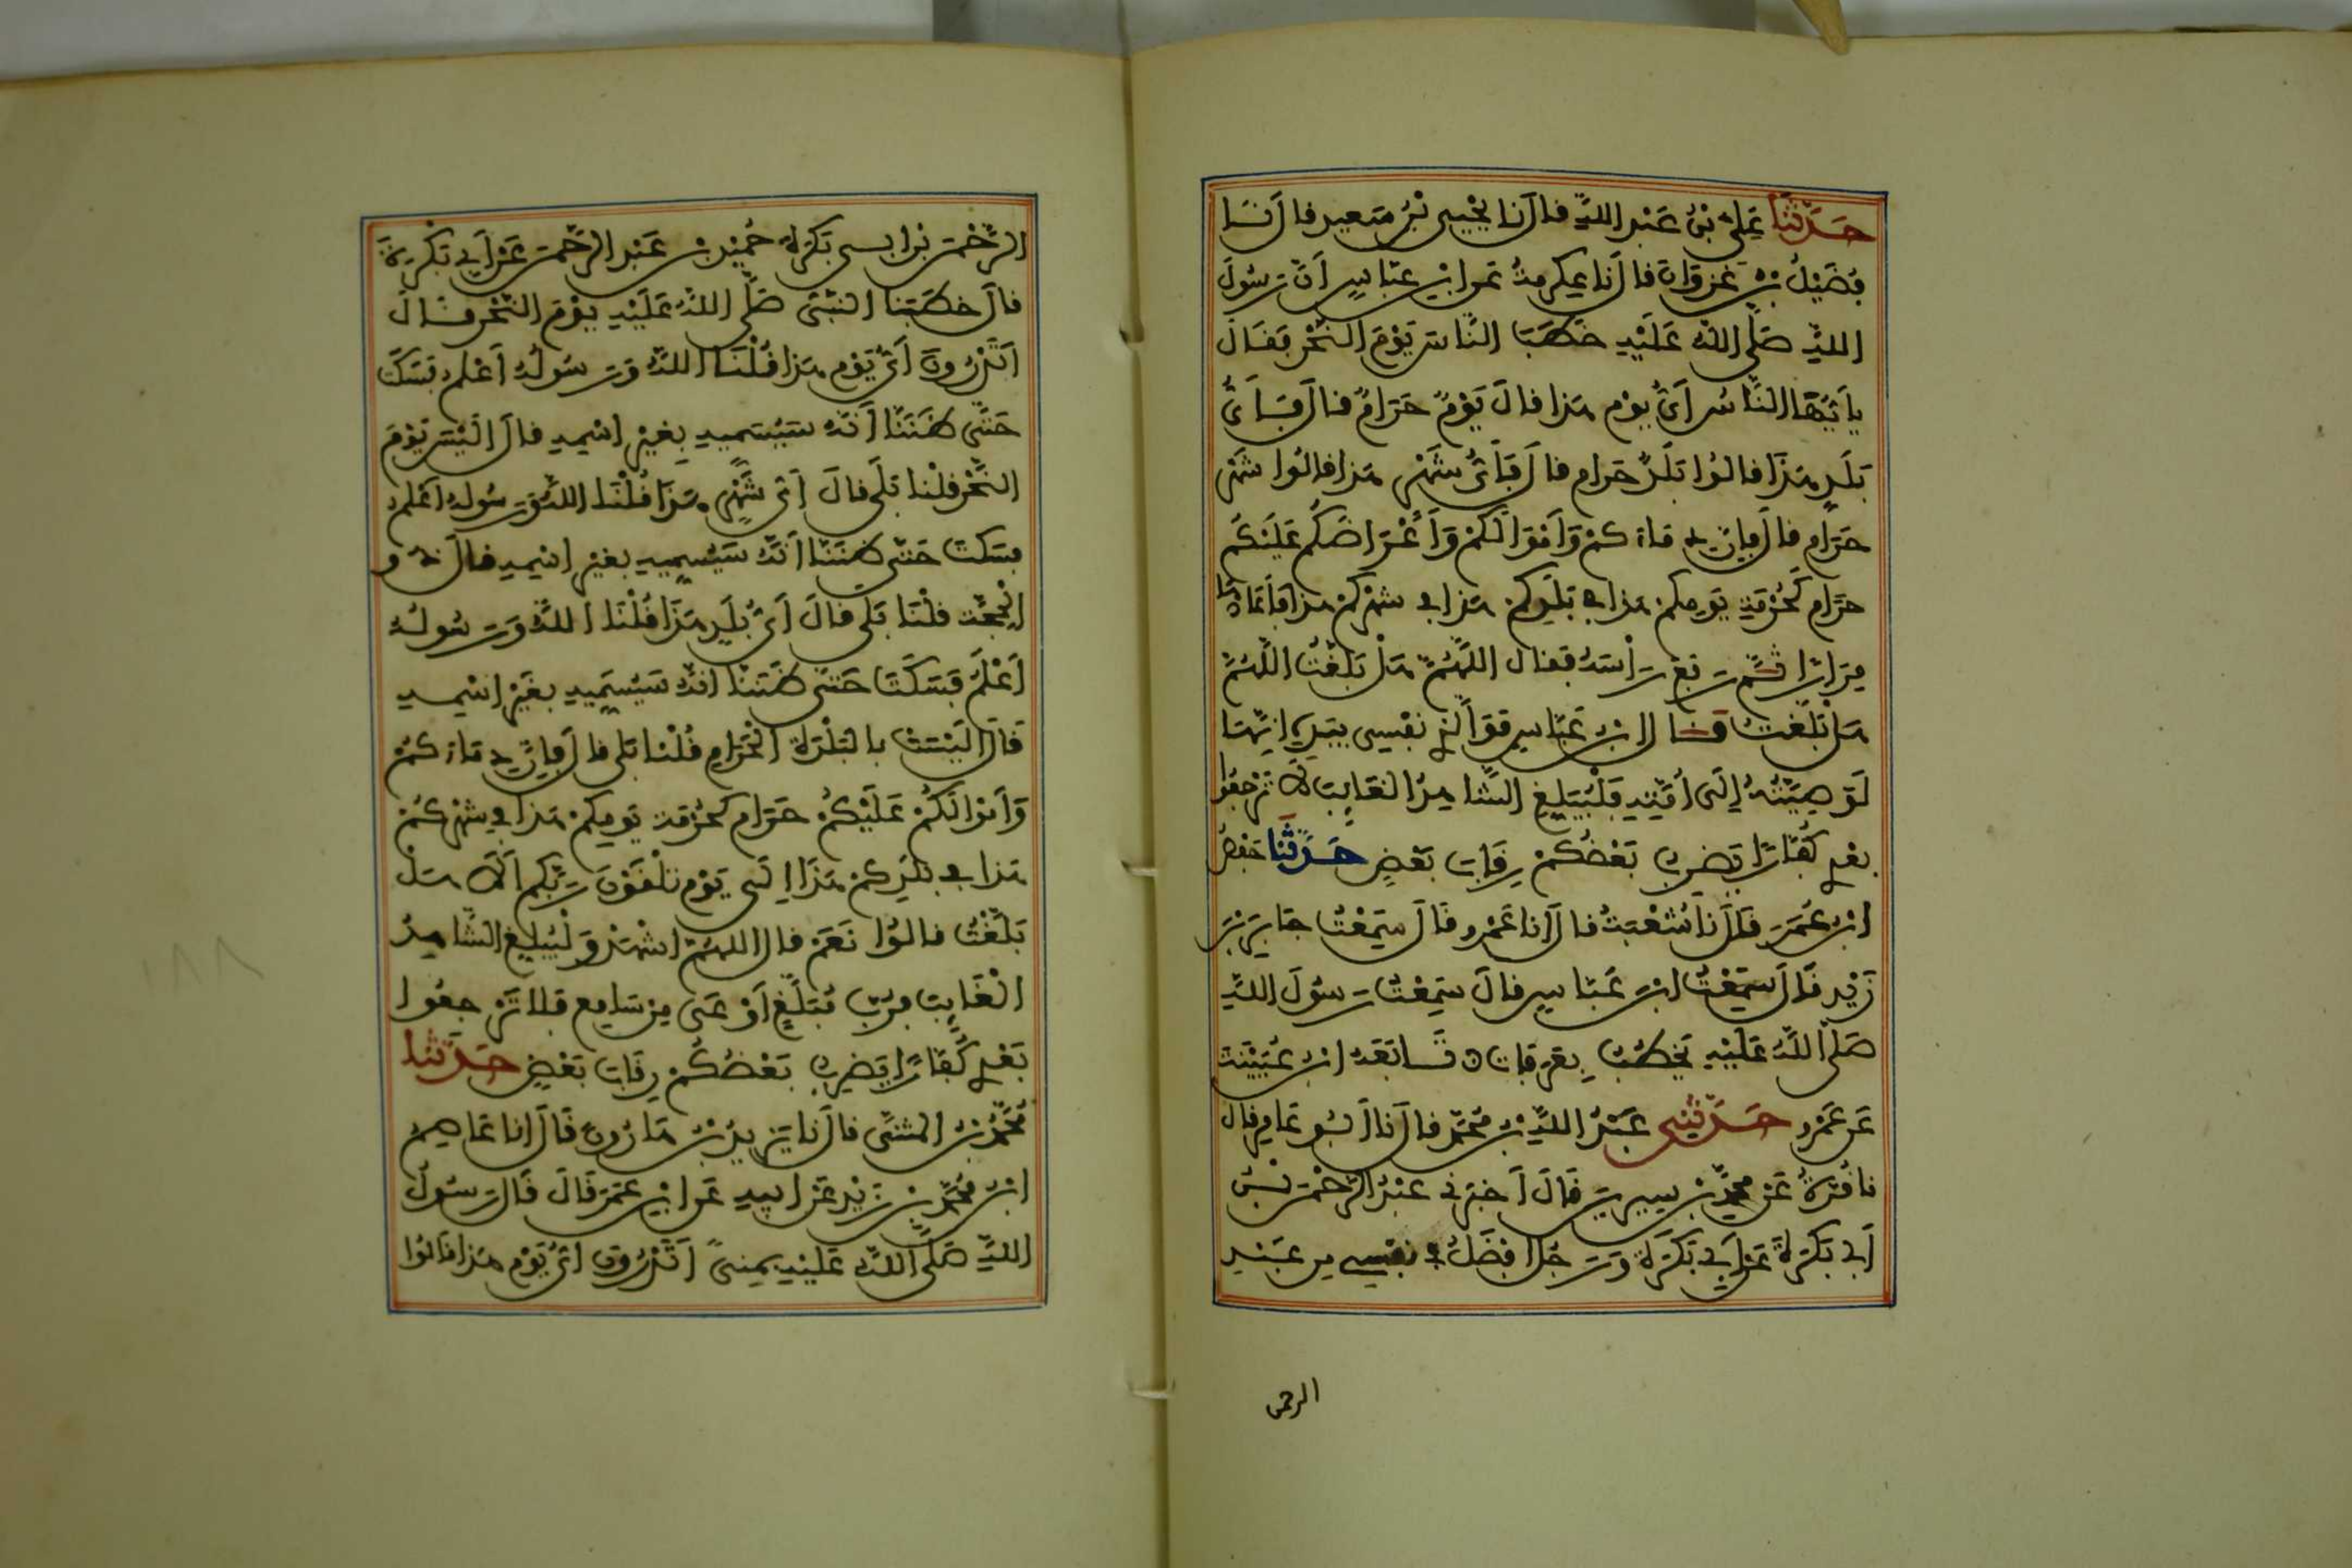 حَدَّثَنَا عَلِيُّ بْنُ عَبْدِ اللهِ قَالَ نَا يَحْيَى بْنُ سَعِيدٍ قَالَ نَا
فُضَيْلُ بْنُ غَزْوَانَ قَالَ نَا عِكْرِمَةُ عَنِ ابْنِ عَبَّاسٍ أَنَّ رَسُولَ
اللهِ صَلَّى اللهُ عَلَيْهِ خَطَبَ النَّاسَ يَوْمَ النَّحْرِ فَقَالَ
يَا أَيُّهَا النَّاسُ أَيُّ يَوْمٍ هَذَا قَالَ يَوْمٌ حَرَامٌ قَالَ فَأَيُّ
بَلَدٍ هَذَا قَالُوا بَلَدٌ حَرَامٌ قَالَ فَأَيُّ شَهْرٍ هَذَا قَالُوا شَهْرٌ
حَرَامٌ قَالَ فَإِنَّ دِمَاءَكُمْ وَأَمْوَالَكُمْ وَأَعْرَاضَكُمْ عَلَيْكُمْ
حَرَامٌ كَحُرْمَةِ يَوْمِكُمْ هَذَا فِي بَلَدِكُمْ هَذَا فِي شَهْرِكُمْ هَذَا فَأَعَادَهَا
مِرَارًا ثُمَّ رَفَعَ رَأْسَهُ فَقَالَ اللَّهُمَّ هَلْ بَلَّغْتُ اللَّهُمَّ
هَلْ بَلَّغْتُ قَالَ ابْنُ عَبَّاسٍ فَوَالَّذِي نَفْسِي بِيَدِهِ إِنَّهَا
لَوَصِيَّتُهُ إِلَى أُمَّتِهِ فَلْيُبَلِّغِ الشَّاهِدُ الْغَائِبَ لَا تَرْجِعُوا
بَعْدِي كُفَّارًا يَضْرِبُ بَعْضُكُمْ رِقَابَ بَعْضٍ حَدَّثَنَا حَفْصُ
ابْنُ عُمَرَ قَالَ نَا شُعْبَةُ قَالَ أَنَا عَمْرٌو قَالَ سَمِعْتُ جَابِرَ بْنَ
زَيْدٍ قَالَ سَمِعْتُ ابْنَ عَبَّاسٍ قَالَ سَمِعْتُ رَسُولَ اللهِ
صَلَّى اللهُ عَلَيْهِ يَخْطُبُ بِعَرَفَاتٍ تَابَعَهُ ابْنُ عُيَيْنَةَ
عَنْ عَمْرٍو حَدَّثَنِي عَبْدُ اللهِ بْنُ مُحَمَّدٍ قَالَ نَا أَبُو عَامِرٍ قَالَ
نَا قُرَّةُ عَنْ مُحَمَّدِ بْنِ سِيرِينَ قَالَ أَخْبَرَنِي عَبْدُ الرَّحْمَنِ بْنُ
أَبِي بَكْرَةَ عَنْ أَبِي بَكْرَةَ وَرَجُلٌ أَفْضَلُ فِي نَفْسِي مِن عَبْدِ
الرحمن
الرَّحْمَنِ بْنِ أَبِي بَكْرَةَ حُمَيْدُ بْنُ عَبْدِ الرَّحْمَنِ عَنْ أَبِي بَكْرَةَ
قَالَ خَطَبَنَا النَّبِيُّ صَلَّى اللهُ عَلَيْهِ يَوْمَ النَّحْرِ قَالَ
أَتَدْرُونَ أَيُّ يَوْمٍ هَذَا قُلْنَا اللهُ وَرَسُولُهُ أَعْلَمُ فَسَكَتَ
حَتَّى ظَنَنَّا أَنَّهُ سَيُسَمِّيهِ بِغَيْرِ اسْمِهِ قَالَ أَلَيْسَ يَوْمَ
النَّحْرِ قُلْنَا بَلَى قَالَ أَيُّ شَهْرٍ هَذَا قُلْنَا اللهُ وَرَسُولُهُ أَعْلَمُ
فَسَكَتَ حَتَّى ظَنَنَّا أَنَّهُ سَيُسَمِّيهِ بِغَيْرِ اسْمِهِ فَقَالَ ذُو
الْحِجَّةِ قُلْنَا بَلَى قَالَ أَيُّ بَلَدٍ هَذَا قُلْنَا اللهُ وَرَسُولُهُ
أَعْلَمُ فَسَكَتَ حَتَّى ظَنَنَّا أَنَّهُ سَيُسَمِّيهِ بِغَيْرِ اسْمِهِ
قَالَ أَلَيْسَتْ بِالْبَلْدَةِ الْحَرَامِ قُلْنَا بَلَى قَالَ فَإِنَّ دِمَاءَكُمْ
وَأَمْوَالَكُمْ عَلَيْكُمْ حَرَامٌ كَحُرْمَةِ يَوْمِكُمْ هَذَا فِي شَهْرِكُمْ
هَذَا فِي بَلَدِكُمْ هَذَا إِلَى يَوْمِ تَلْقَوْنَ رَبَّكُمْ أَلَا هَلْ
بَلَّغْتُ قَالُوا نَعَمْ قَالَ اللَّهُمَّ اشْهَدْ وَلْيُبَلِّغِ الشَّاهِدُ
الْغَائِبَ فَرُبَّ مُبَلَّغٍ أَوْعَى مِنْ سَامِعٍ فَلَا تَرْجِعُوا
بَعْدِي كُفَّارًا يَضْرِبُ بَعْضُكُمْ رِقَابَ بَعْضٍ حَدَّثَنَا
مُحَمَّدُ بْنُ الْمُثَنَّى قَالَ نَا يَزِيدُ بْنُ هَارُونَ قَالَ أَنَا عَاصِمُ
ابْنُ مُحَمَّدِ بْنِ زَيْدٍ عَنْ أَبِيهِ عَنِ ابْنِ عُمَرَ قَالَ قَالَ رَسُولُ
اللهِ صَلَّى اللهُ عَلَيْهِ بِمِنًى أَتَدْرُونَ أَيُّ يَوْمٍ هَذَا قَالُوا
١٨٨